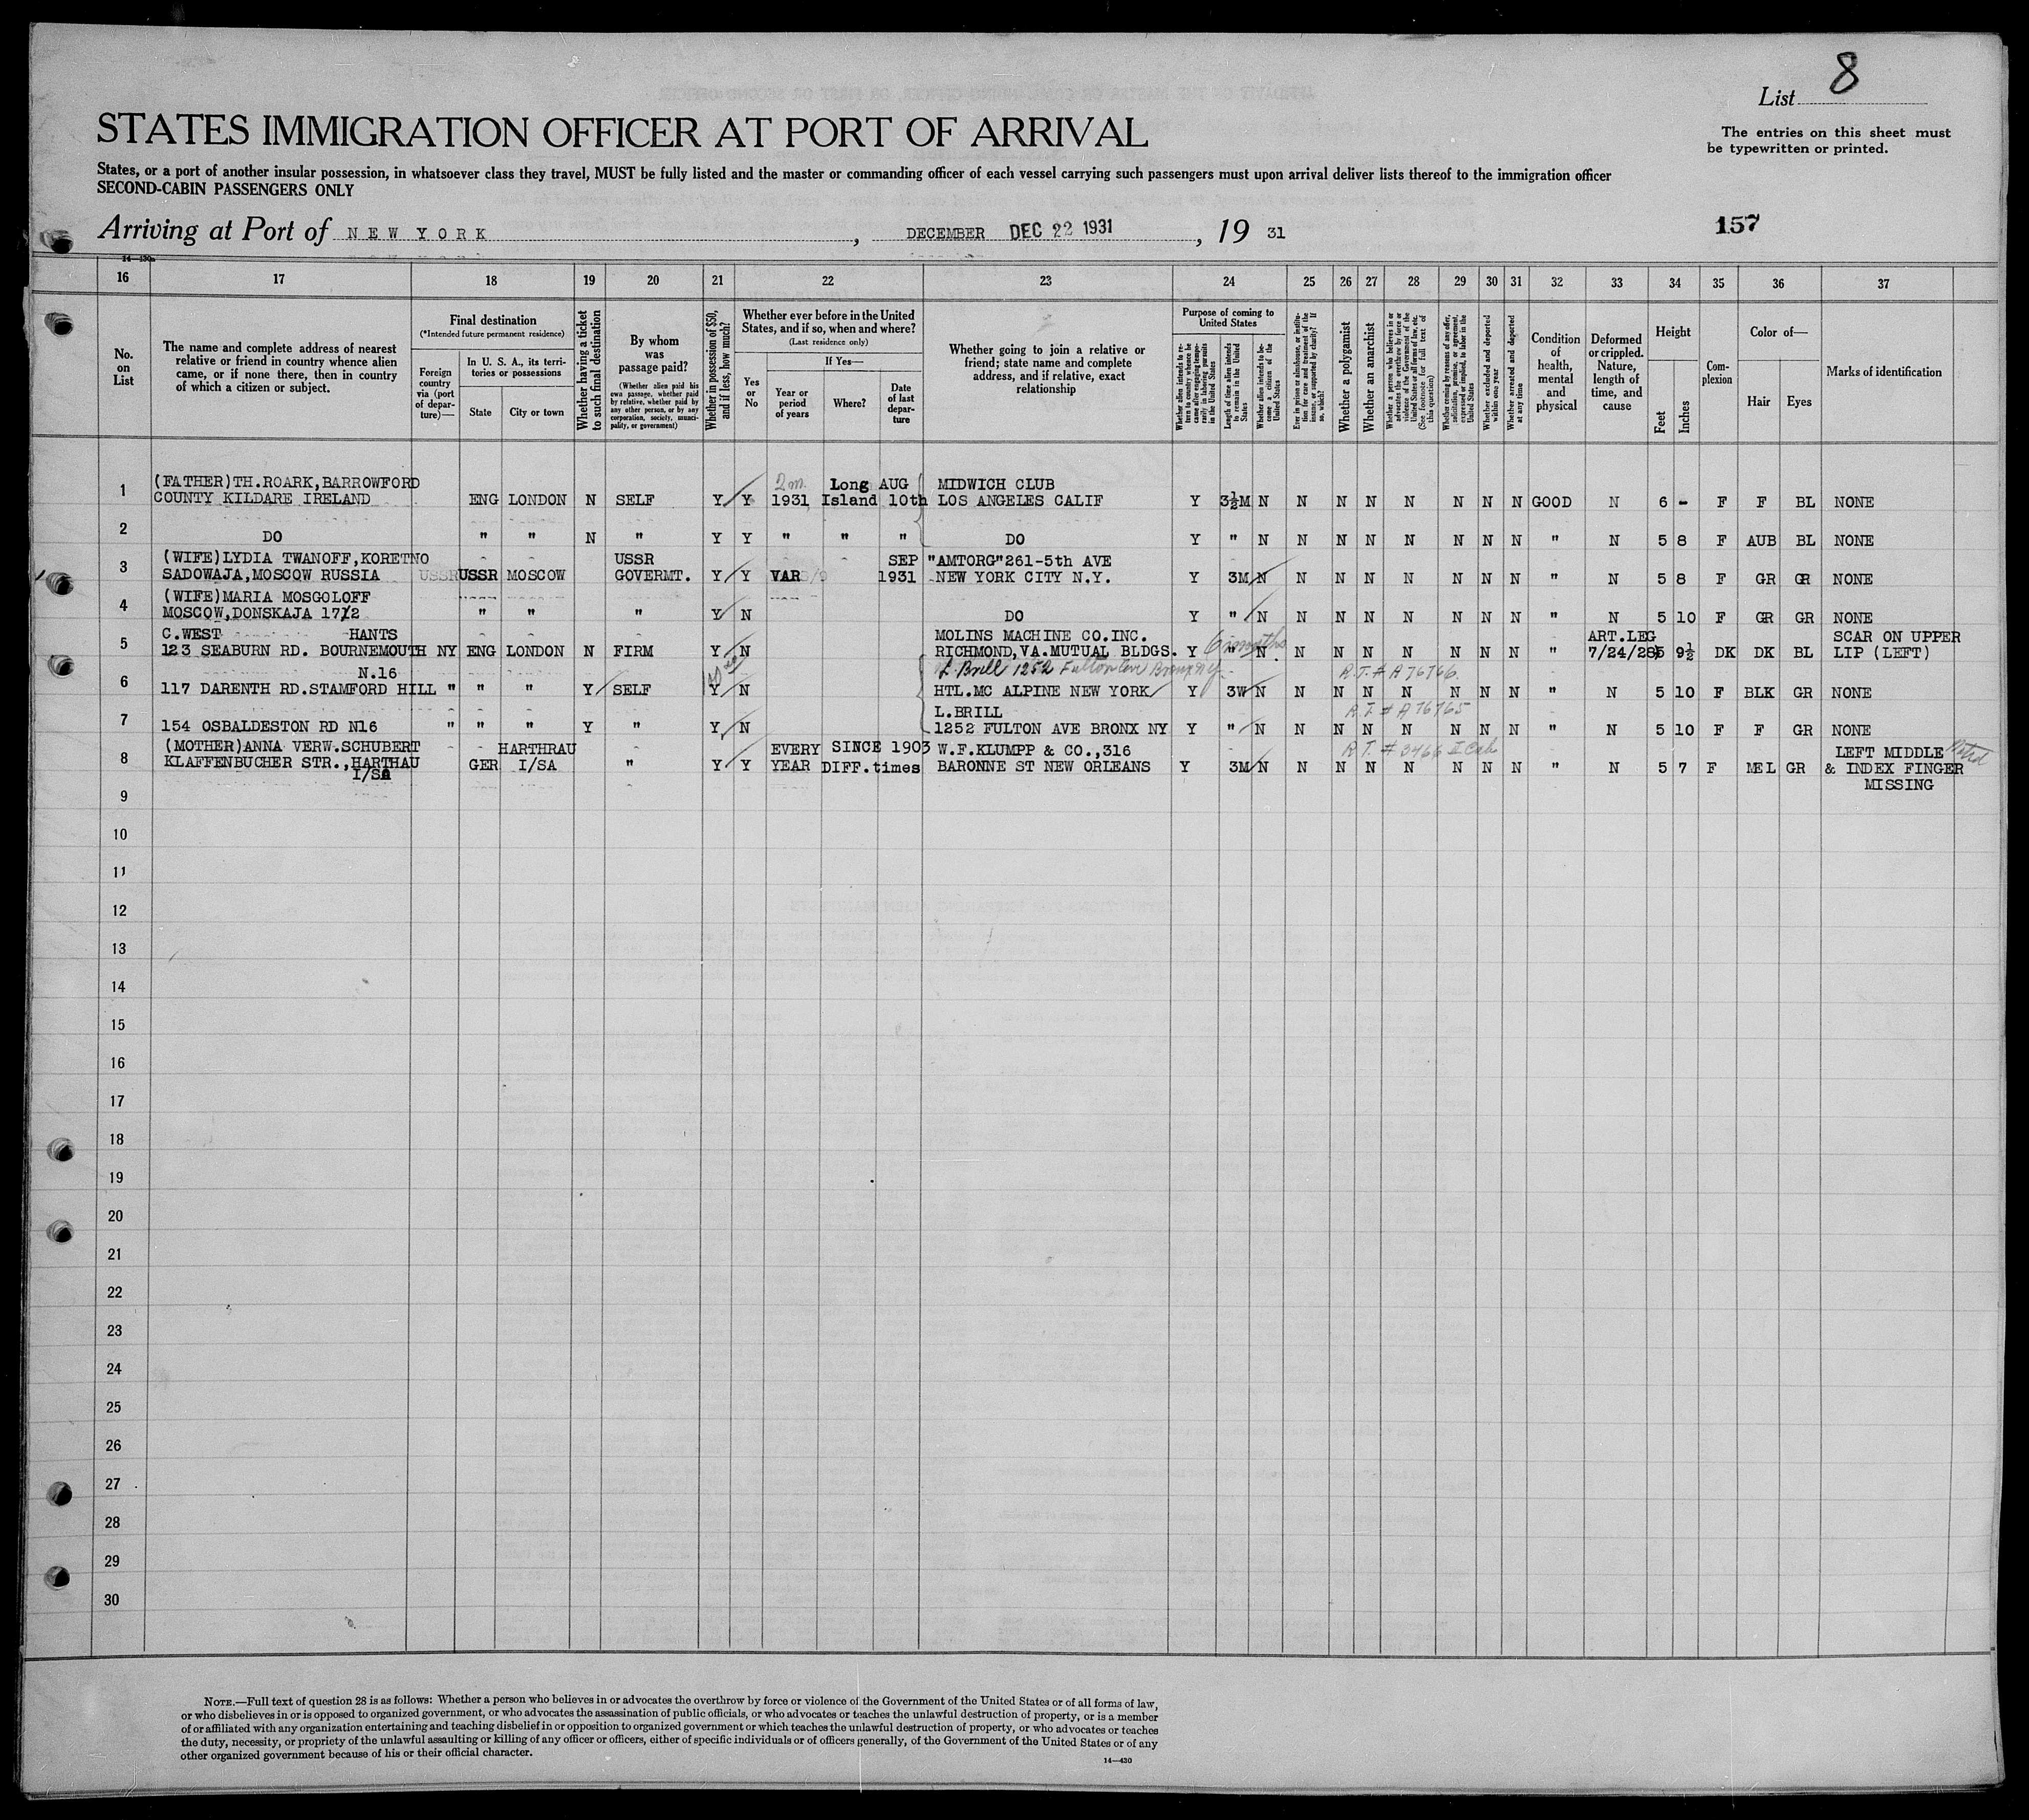 List 8
STATES IMMIGRATION OFFICER AT PORT OF ARRIVAL
The entries on this sheet must
be typewritten or printed.
States, or a port of another insular possession, in whatsoever class they travel, MUST be fully listed and the master or commanding officer of each vessel carrying such passengers must upon arrival deliver lists thereof to the immigration officer
SECOND-CABIN PASSENGERS ONLY
Arriving at Port of NEW YORK, DECEMBER DEC 22 1931, 19 31
157
16 17 18 19 20 21 22 23 24 25 26 27 28 29 30 31 32 33 34 35 36 37
No. on List
The name and complete address of nearest
relative or friend in country whence alien
came, or if none there, then in country
of which a citizen or subject.
Final destination
(*Intended future permanent residence)
Foreign country via (port of departure)—
In U. S. A., its territories or possessions
State
City or town
Whether having a ticket to such final destination
By whom was passage paid?
(Whether alien paid his own passage, whether paid by relative, whether paid by any other person, or by any corporation, society, municipality, or government)
Whether in possession of $50, and if less, how much?
Whether ever before in the United States, and if so, when and where?
(Last residence only)
Yes or No
If Yes—
Year or period of years
Where?
Date of last departure
Whether going to join a relative or
friend; state name and complete
address, and if relative, exact
relationship
Purpose of coming to United States
Whether alien intends to return to country whence he came after engaging temporarily in laboring pursuits in the United States
Length of time alien intends to remain in the United States
Whether alien intends to become a citizen of the United States
Ever in prison or almshouse, or institution for care and treatment of the insane, or supported by charity? If so, which?
Whether a polygamist
Whether an anarchist
Whether a person who believes in or advocates the overthrow by force or violence of the Government of the United States or all forms of law, etc. (See footnote for full text of this question)
Whether coming by reasons of any offer, solicitation, promise, or agreement, expressed or implied, to labor in the United States
Whether excluded and deported within one year
Whether arrested and deported at any time
Condition of health, mental and physical
Deformed or crippled. Nature, length of time, and cause
Height
Feet
Inches
Complexion
Color of—
Hair
Eyes
Marks of identification
(FATHER)TH.ROARK,BARROWFORD 2m Long AUG MIDWICH CLUB
1 COUNTY KILDARE IRELAND ENG LONDON N SELF Y Y 1931 Island 10th LOS ANGELES CALIF Y 3½M N N N N N N N N GOOD N 6 - F F BL NONE
2 DO " " N " Y Y " " " DO Y " N N N N N N N N " N 5 8 F AUB BL NONE
(WIFE)LYDIA TWANOFF,KORETNO USSR SEP "AMTORG"261-5th AVE
3 SADOWAJA,MOSCOW RUSSIA USSR USSR MOSCOW GOVERMT. Y Y VAR 1931 NEW YORK CITY N.Y. Y 3M N N N N N N N N " N 5 8 F GR GR NONE
(WIFE)MARIA MOSGOLOFF
4 MOSCOW,DONSKAJA 17/2 " " " Y N DO Y " N N N N N N N N " N 5 10 F GR GR NONE
C.WEST HANTS MOLINS MACHINE CO.INC. ART.LEG SCAR ON UPPER
5 123 SEABURN RD. BOURNEMOUTH NY ENG LONDON N FIRM Y N RICHMOND,VA.MUTUAL BLDGS. Y " 6 months N N N N N N N N " 7/24/28 5 9½ DK DK BL LIP (LEFT)
N.16 L. Brill 1252 Fulton Ave Bronx NY R.T. # A 76766
6 117 DARENTH RD.STAMFORD HILL " " " Y SELF Y N HTL.MC ALPINE NEW YORK Y 3W N N N N N N N N " N 5 10 F BLK GR NONE
L.BRILL R.T. # A 76765
7 154 OSBALDESTON RD N16 " " " Y " Y N 1252 FULTON AVE BRONX NY Y " N N N N N N N N " N 5 10 F F GR NONE
(MOTHER)ANNA VERW.SCHUBERT HARTHRAU EVERY SINCE 1903 W.F.KLUMPP & CO.,316 R.T. # 3466 LEFT MIDDLE
8 KLAFFENBUCHER STR.,HARTHAU GER I/SA " Y Y YEAR DIFF.times BARONNE ST NEW ORLEANS Y 3M N N N N N N N N " N 5 7 F MEL GR & INDEX FINGER
I/SA MISSING
9
10
11
12
13
14
15
16
17
18
19
20
21
22
23
24
25
26
27
28
29
30
NOTE.—Full text of question 28 is as follows: Whether a person who believes in or advocates the overthrow by force or violence of the Government of the United States or of all forms of law,
or who disbelieves in or is opposed to organized government, or who advocates the assassination of public officials, or who advocates or teaches the unlawful destruction of property, or is a member
of or affiliated with any organization entertaining and teaching disbelief in or opposition to organized government or which teaches the unlawful destruction of property, or who advocates or teaches
the duty, necessity, or propriety of the unlawful assaulting or killing of any officer or officers, either of specific individuals or of officers generally, of the Government of the United States or of any
other organized government because of his or their official character.
14—430